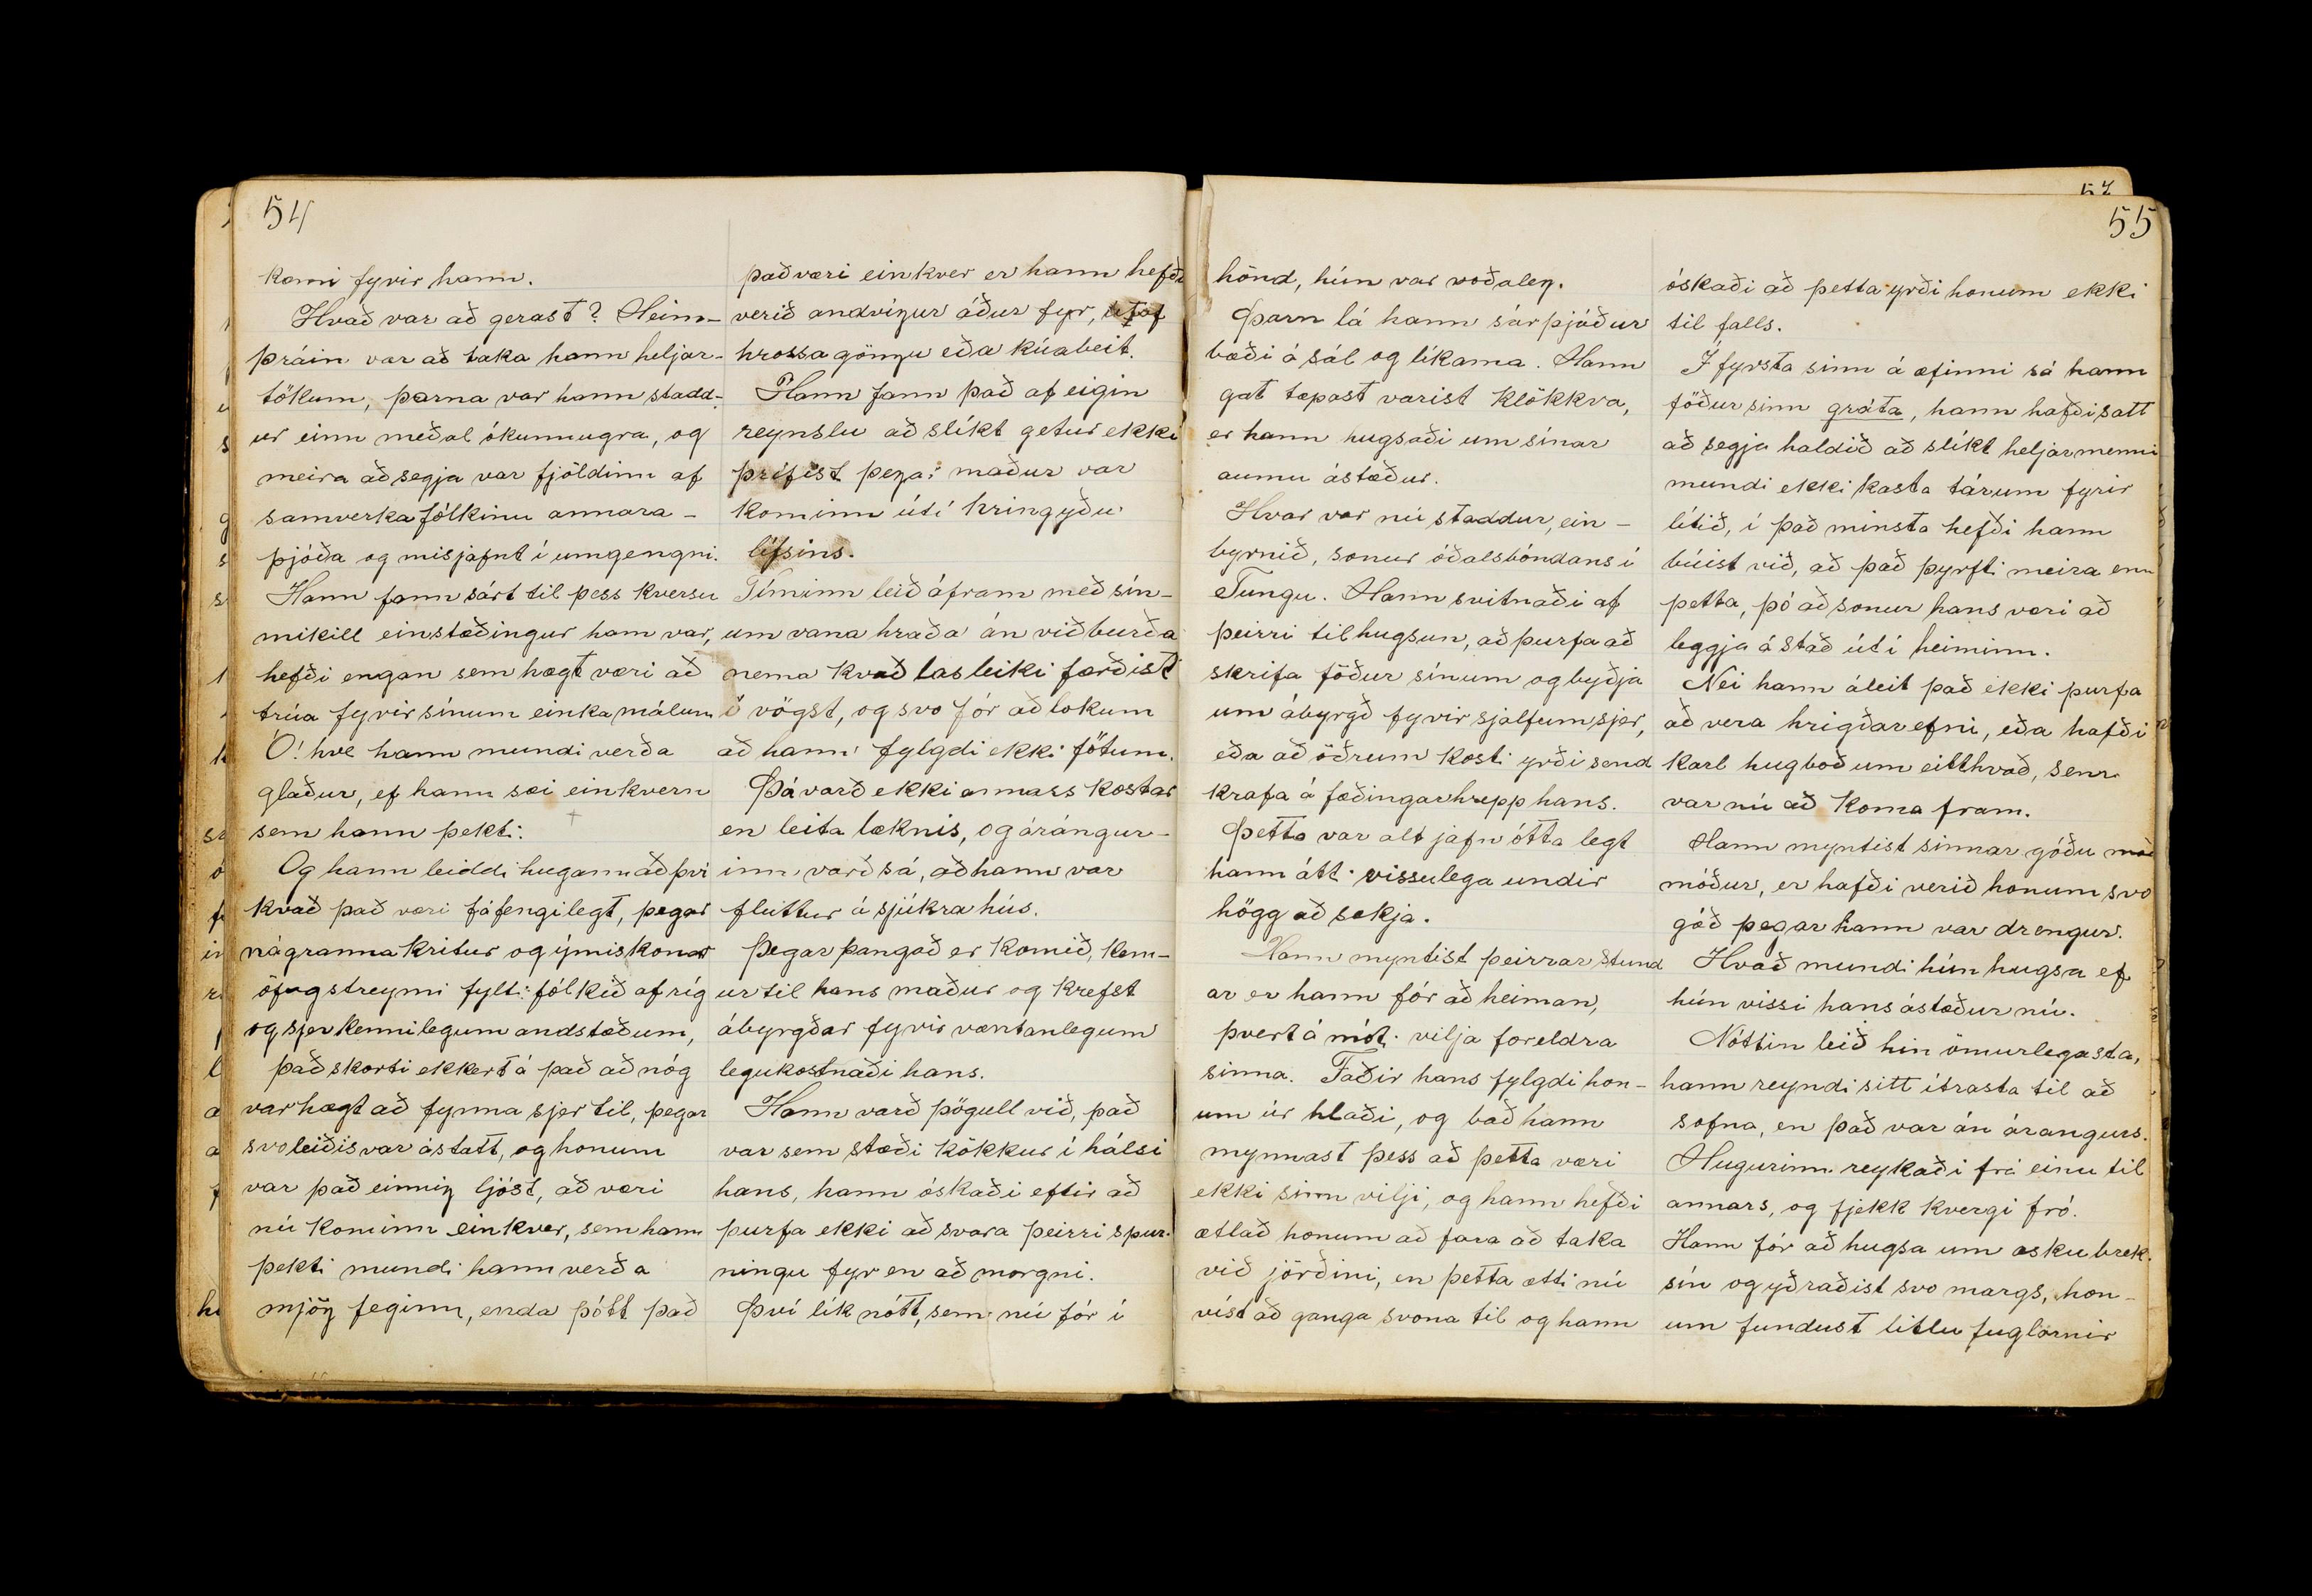 54
komi fyrir hann.
Hvað var að gerast? Heim-
þráin var að taka hann heljar-
tökum, þarna var hann stadd-
ur einn meðal ókunnugra, og
meira að segja var fjöldinn af
samverkafólkinu annara-
þjóða og misjafnt í umgengni.
Hann fann sárt til þess kversu
mikill einstæðingur hann var,
hefði engan sem hægt væri að
trúa fyrir sínum einkamálum
Ó! hve hann mundi verða
glaður, ef hann sæi einkvern
sem hann þekti.
Og hann leiddi hugann að því
kvað það væri fáfengilegt, þegar
nágrannakritur og ýmiskonar
öfugstreymi fylti fólkið af ríg
og sjerkennilegum andstæðum,
það skorti ekkert á það að nóg
var hægt að fynna sjer til, þegar
svoleiðis var ástatt, og honum
var það einnig ljóst, að væri
nú kominn einkver, sem hann
þekti mundi hann verða
mjög feginn, enda þótt það
það væri einkver er hann hefði
verið andvígur áður fyr, útaf
hrossagöngu eða kúabeit.
Hann fann það af eigin
reynslu að slíkt getur ekki
þrífist þegar maður var
kominn útí hringyðu
lífsins.
Tíminn leið áfram með sín-
um vana hraða án viðburða
nema kvað lasleiki færðist
í vögst, og svo fór að lokum
að hann fylgdi ekki fötum.
Þá varð ekki annars kostar
en leita læknis, og árángur-
inn varð sá, að hann var
fluttur á sjúkrahús.
Þegar þangað er komið, kem-
ur til hans maður og krefst
ábyrgðar fyrir væntanlegum
legukostnaði hans.
Hann varð þögull við, það
var sem stæði kökkur í hálsi
hans, hann óskaði eftir að
þurfa ekki að svara þeirri spur-
ningu fyr en að morgni.
Því lík nótt, sem nú fór í
57
55
hönd, hún var voðaleg.
Þarn lá hann sárþjáður
bæði á sál og líkama. Hann
gat tæpast varist klökkva,
er hann hugsaði um sínar
aumu ástæður.
Hvar var nú staddur, ein-
byrnið, sonur óðalsbóndans í
Tungu. Hann svitnaði af
þeirri tilhugsun, að þurfa að
skrifa föður sínum og byðja
um ábyrgð fyrir sjálfum sjer,
eða að öðrum kosti yrði send
krafa á fæðingarhrepp hans.
Þetta var alt jafn óttalegt
hann átti vissulega undir
högg að sækja.
Hann myntist þeirrar stund
ar er hann fór að heiman,
þvert á mót vilja foreldra
sinna. Faðir hans fylgdi hon-
um úr hlaði, og bað hann
mynnast þess að þetta væri
ekki sinn vilji, og hann hefði
ætlað honum að fara að taka
við jörðini, en þetta ætti nú
víst að ganga svona til og hann
óskaði að þetta yrði honum ekki
til falls.
Í fyrsta sinn á æfinni sá hann
föður sinn gráta, hann hafði satt
að segja haldið að slíkt heljarmenni
mundi ekki kasta tárum fyrir
lítið, í það minsta hefði hann
búist við, að það þyrfti meira enn
þetta, þó að sonur hans væri að
leggja á stað útí heiminn.
Nei hann áleit það ekki þurfa
að vera hrigðarefni, eða hafði
karl hugboð um eitthvað, sem
var nú að koma fram.
Hann myntist sinnar góðu
móður, er hafði verið honum svo
góð þegar hann var drengur.
Hvað mundi hún hugsa ef
hún vissi hans ástæður nú.
Nóttin leið hin ömurlegasta,
hann reyndi sitt ítrasta til að
sofna, en það var án árangurs.
Hugurinn reykaði frá einu til
annars, og fjekk kvergi fró.
Hann fór að hugsa um æskubrek
sín og yðraðist svo margs, hon-
um fundust litlu fuglarnir